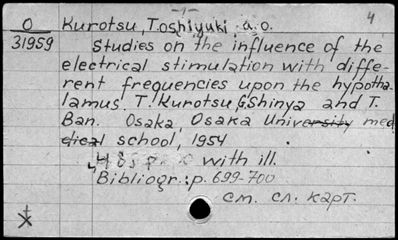 -1-
4
O Kurotsu, Toshiyuki, a.o.
31959 Studies on the influence of the
electrical stimulation with diffe-
rent frequencies upon the hypotha-
lamus. T. Kurotsu, G. Shinya and T.
Ban. Osaka, Osaka University med
dical school, 1954
with ill.
Bibliogr.: p. 699-700
см. сл. карт.